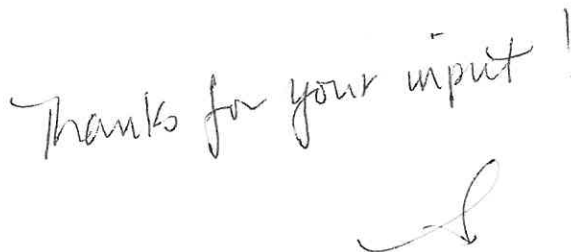 Thanks for your input!